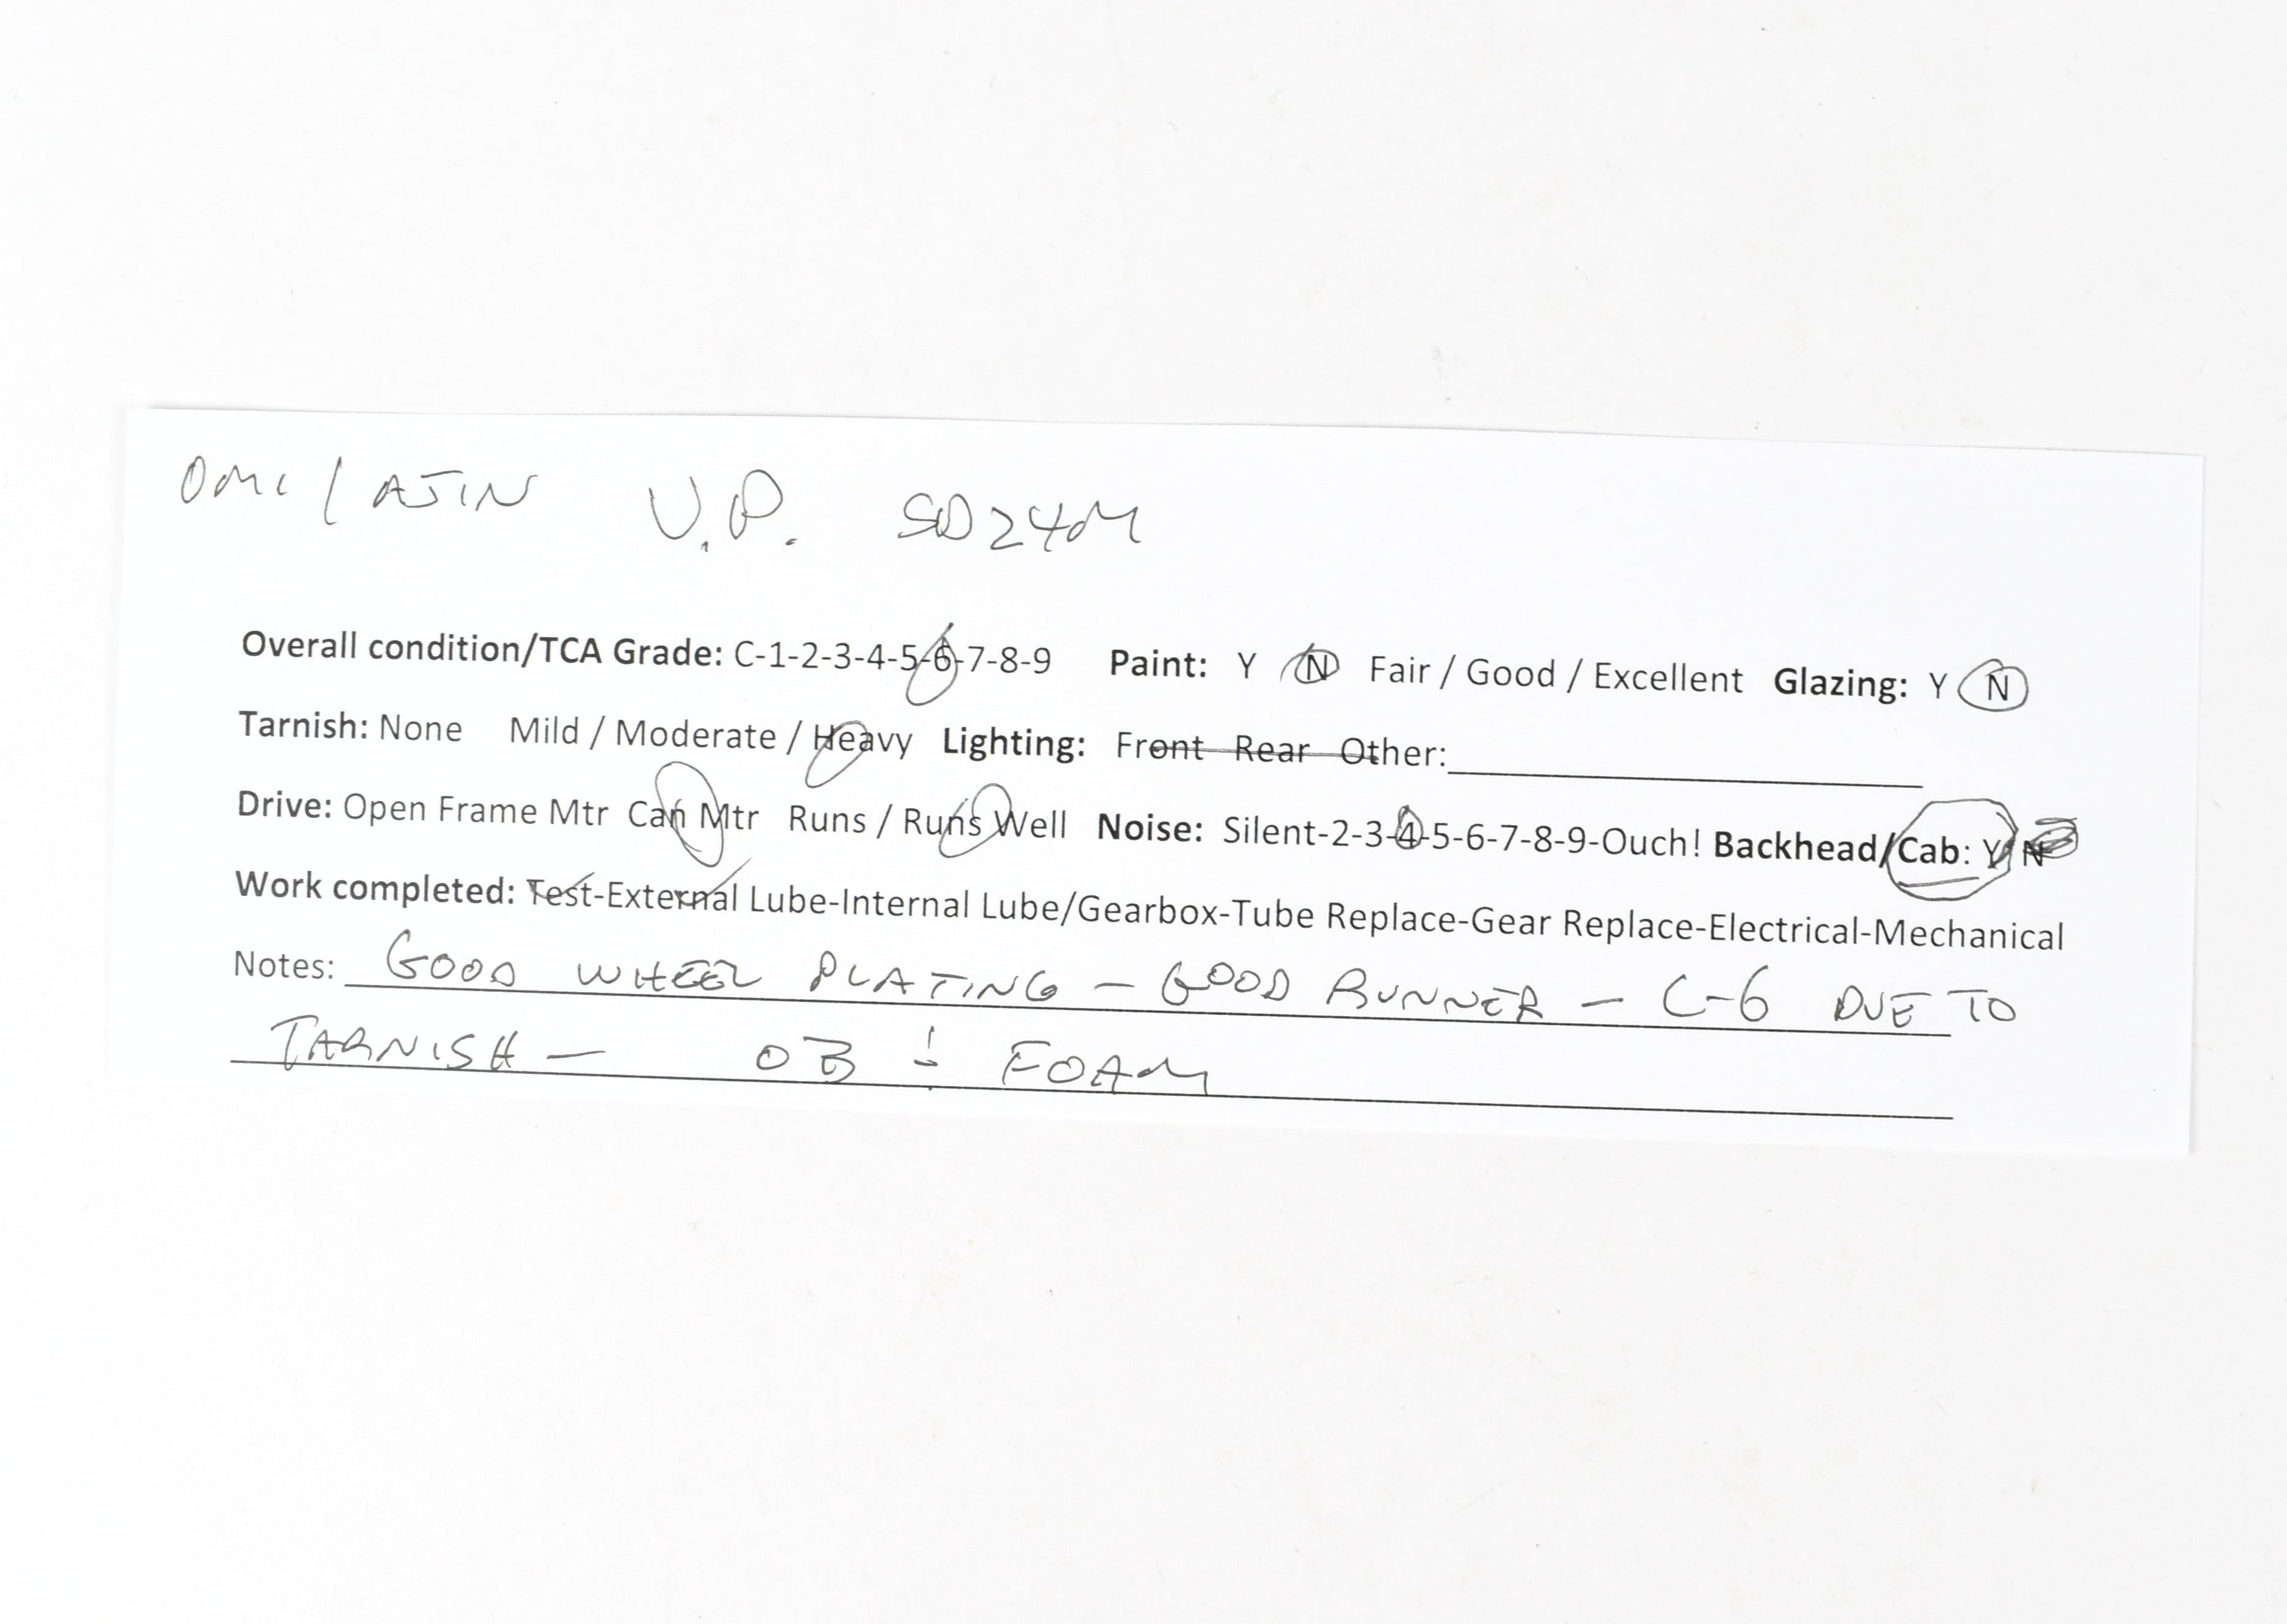 OMI / AJIN U.P. SD24M
Overall condition/TCA Grade: C-1-2-3-4-5-6-7-8-9 Paint: Y N Fair / Good / Excellent Glazing: Y N
Tarnish: None Mild / Moderate / Heavy Lighting: Front Rear Other:
Drive: Open Frame Mtr Can Mtr Runs / Runs Well Noise: Silent-2-3-4-5-6-7-8-9-Ouch! Backhead/Cab: Y N
Work completed: Test-External Lube-Internal Lube/Gearbox-Tube Replace-Gear Replace-Electrical-Mechanical
Notes: GOOD WHEEL PLATING - GOOD RUNNER - C-6 DUE TO
TARNISH - OB & FOAM